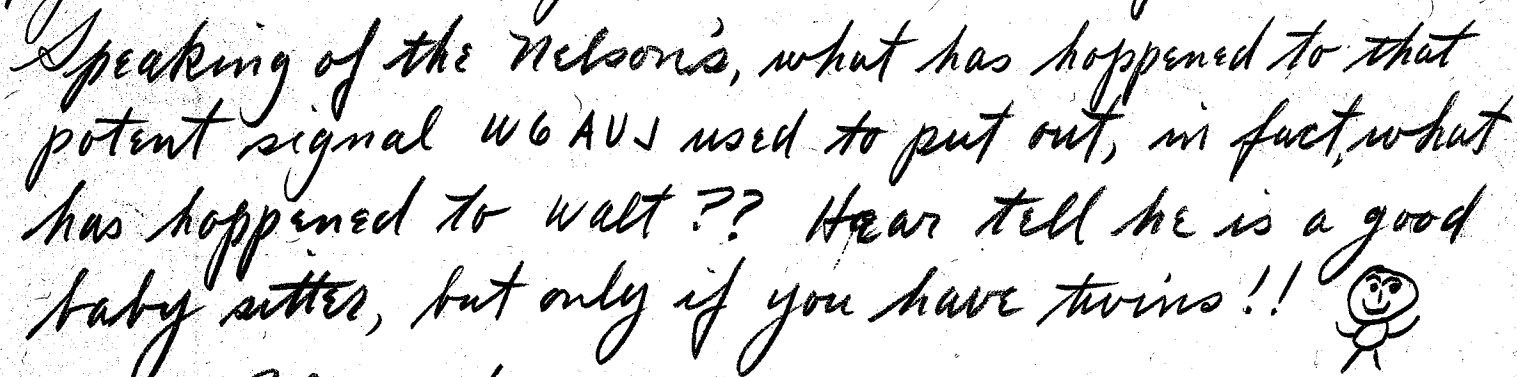 Speaking of the Nelson's, what has happened to that
potent signal W6AUJ used to put out, in fact, what
has happened to Walt?? Hear tell he is a good
baby sitter, but only if you have twins!!